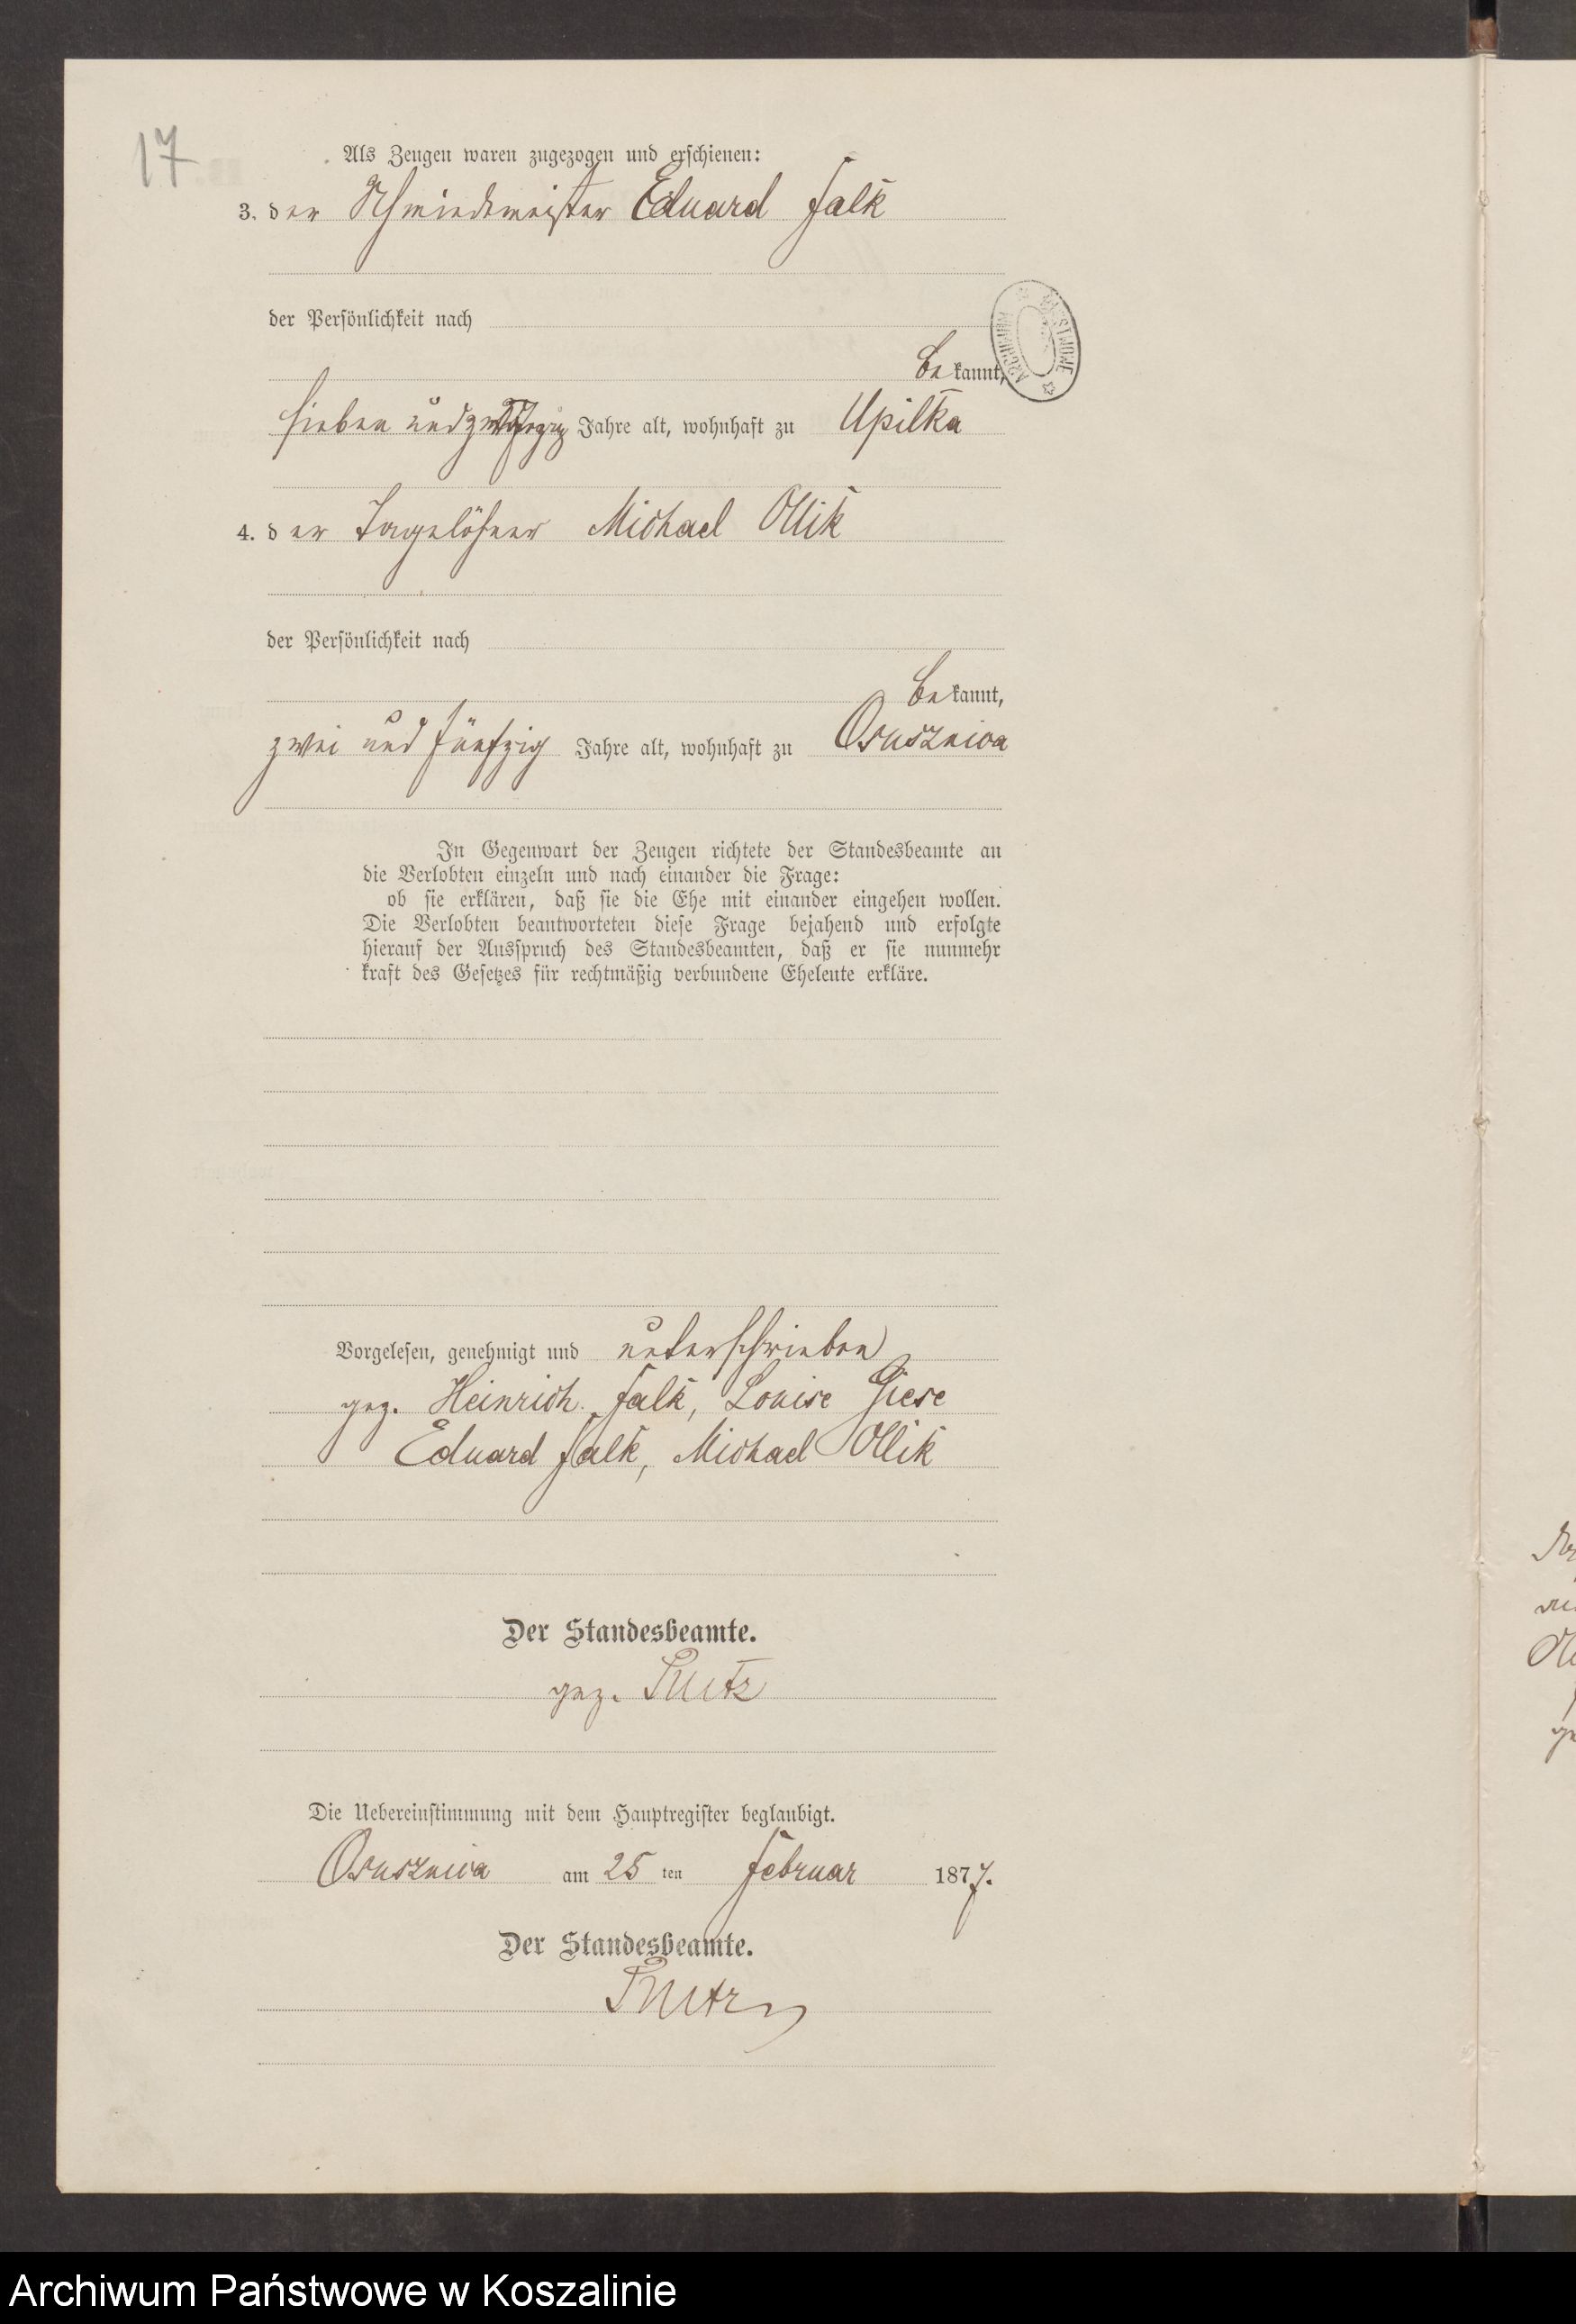 17
Als Zeugen waren zugezogen und erschienen:
3. der Schmiedemeister Eduard Falk
der Persönlichkeit nach
bekannt,
sieben und Jahre alt, wohnhaft zu Upilka
4. der Tagelöhner Michael Ollik
der Persönlichkeit nach
bekannt,
zwei und fünfzig Jahre alt, wohnhaft zu Osusznica
In Gegenwart der Zeugen richtete der Standesbeamte an
die Verlobten einzeln und nach einander die Frage:
ob sie erklären, daß sie die Ehe mit einander eingehen wollen.
Die Verlobten beantworteten diese Frage bejahend und erfolgte
hierauf der Ausspruch des Standesbeamten, daß er sie nunmehr
kraft des Gesetzes für rechtmäßig verbundene Eheleute erkläre.
Vorgelesen, genehmigt und unterschrieben
gez. Heinrich Falk, Louise Giese
Eduard Falk, Michael Ollik
Der Standesbeamte.
gez.
Die Uebereinstimmung mit dem Hauptregister beglaubigt.
Osusznica am 25 ten Februar 1877.
Der Standesbeamte.
Archiwum Państwowe w Koszalinie